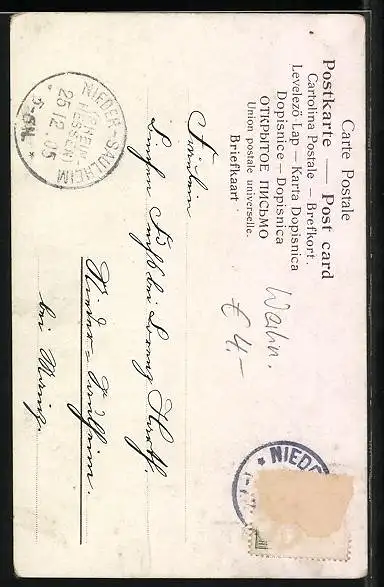 Carte Postale
Postkarte — Post card
Cartolina Postale – Brefkort
Levelező-Lap – Karta Dopisnica
Dopisnice – Dopisnica
ОТКРЫТОЕ ПИСЬМО
Union postale universelle.
Briefkaart
Weihn.
€ 4.–
NIEDER-SAULHEIM
25.12.05
5-6N.
Fräulein
bei Georg
Nieder-Saulheim.
bei Mainz.
NIED